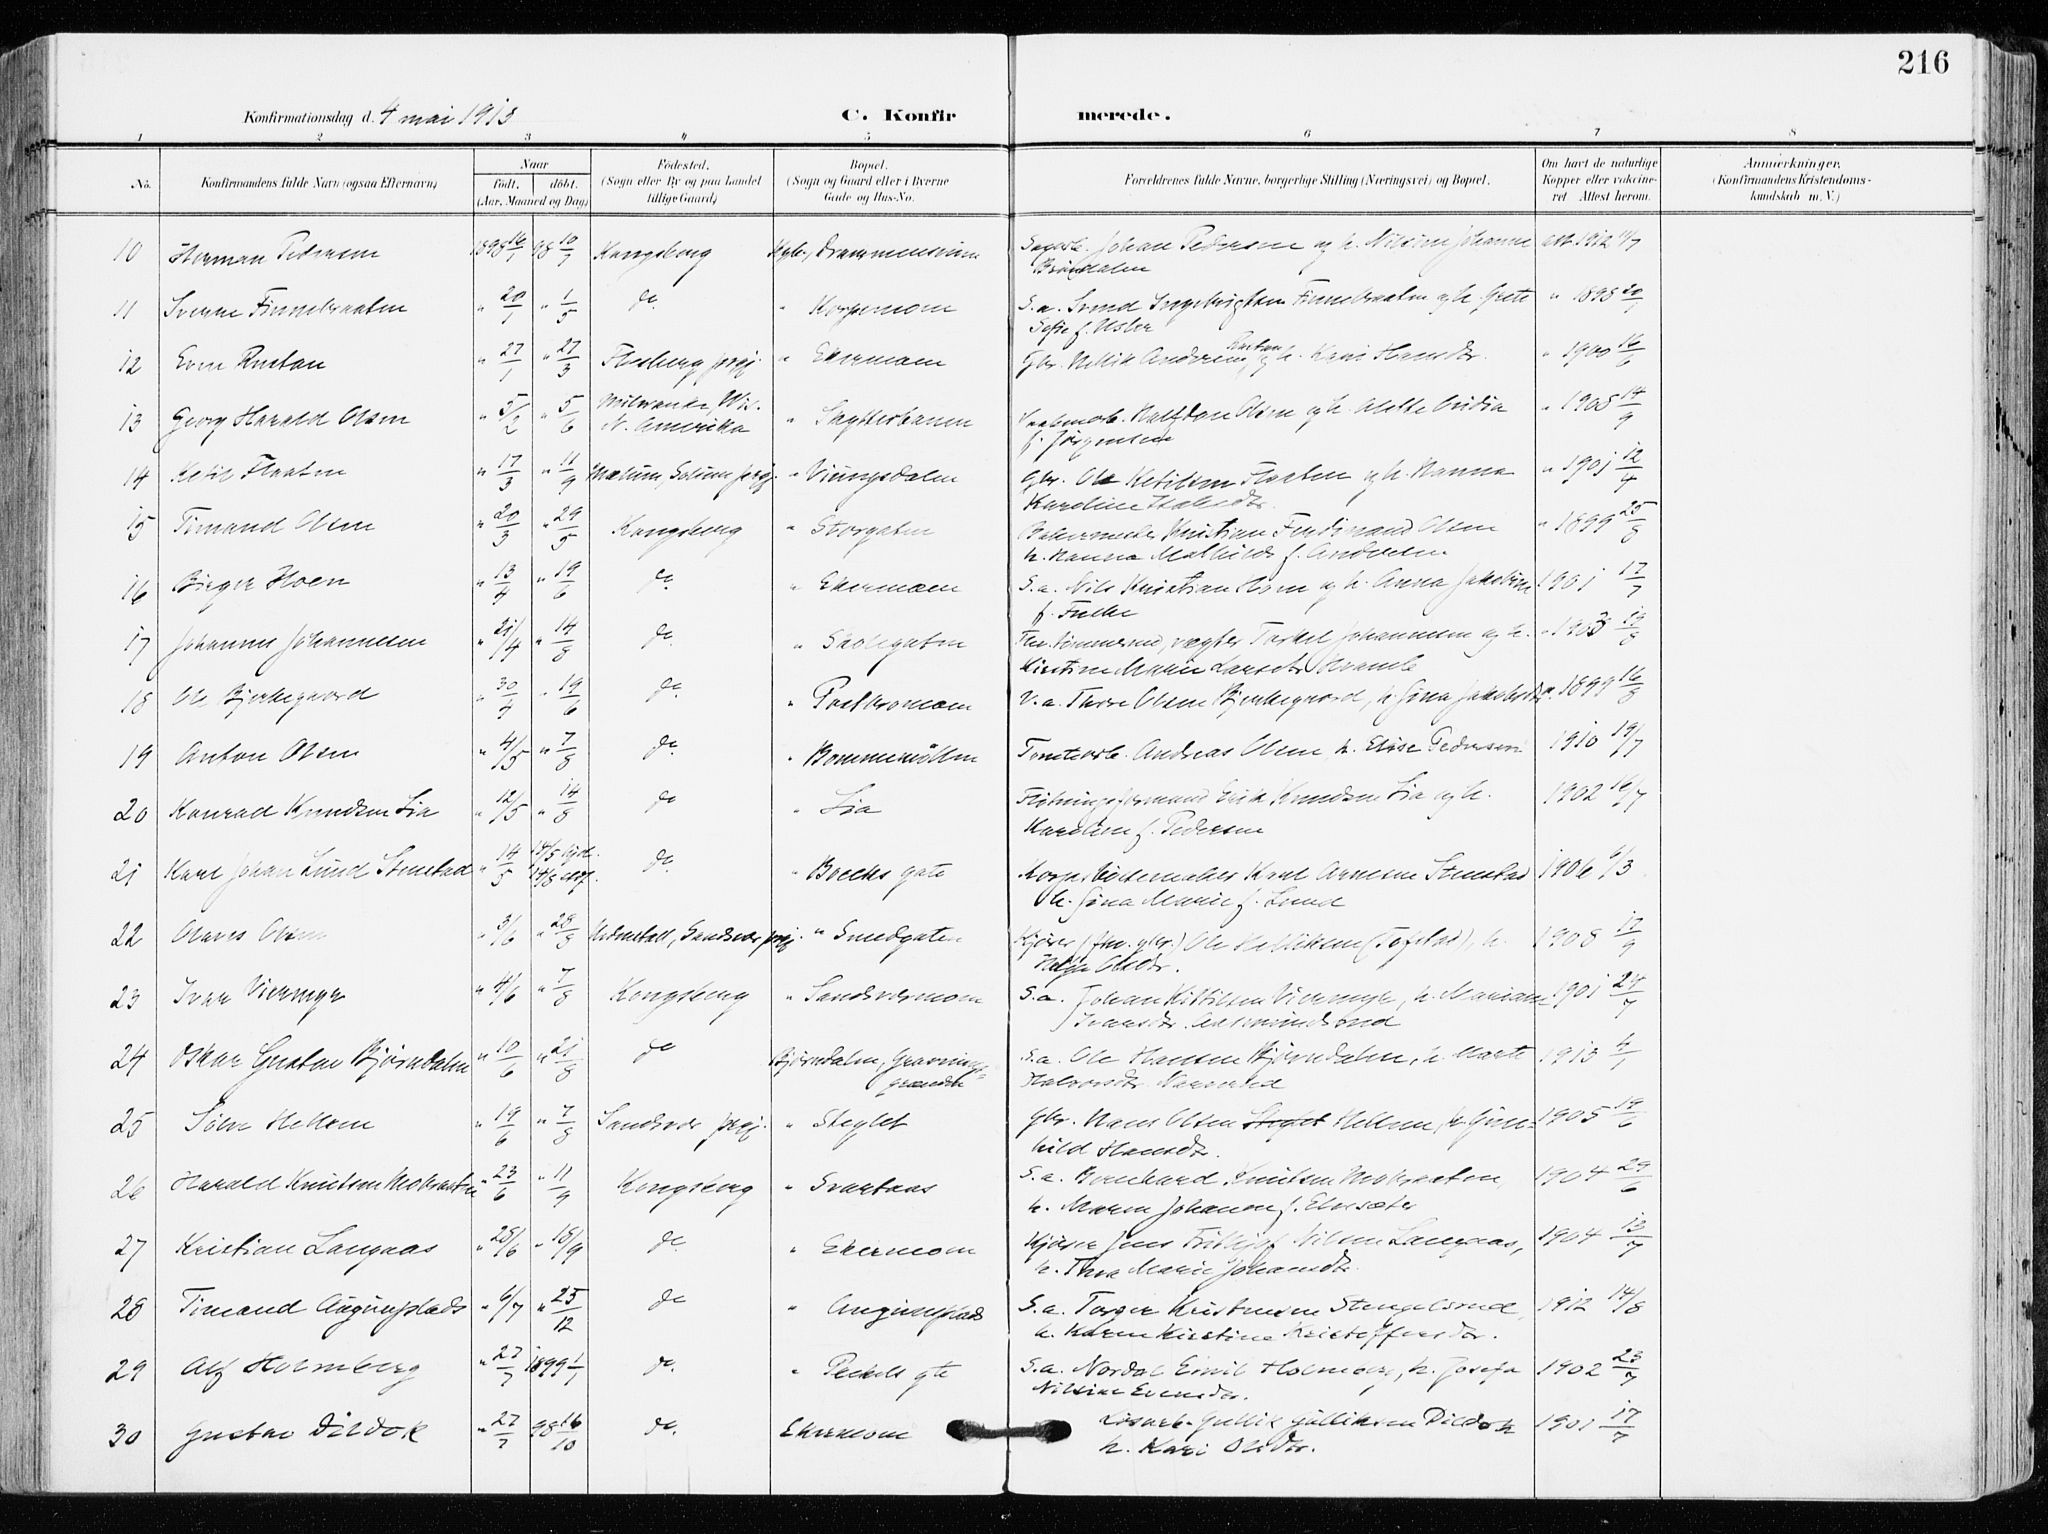 216
Konfirmationsdag d. 4 mai 1913
C. Konfir merede.
1 2 3 4 5 6 7 8
No. Konfirmandens fulde Navn (ogsaa Efternavn) Naar født. døbt. (Aar, Maaned og Dag) Fødested. (Sogn eller By og paa Landet tillige Gaard) Bopæl. (Sogn og Gaard eller i Byerne Gade og Hus-No. Forældrenes fulde Navne, borgerlige Stilling (Næringsvei) og Bopæl. Om havt de naturlige Kopper eller vakcineret. Attest herom. Anmerkninger. (Konfirmandens Kristendomskundskab m. V.)
10 Herman Pedersen 1898 16/1 98 10/7 Kongsberg Johan Pedersen og h. Nilsine Johanne att 1912 11/7
Brøndalen
11 Sverre Finnebraaten " 20/1 " 1/5 do. " Korpemoen S.a. Svend Ingebrigtsen Finnebraaten og h. Grete " 1898 20/7
Sofie f. Usler
12 Even Rustan " 27/1 " 27/3 Flesberg prgj. " Ekermoen Gbr. Killik Andersen Rustan og h. Kari Hansdr. " 1900 16/6
13 Georg Harald Olsen " 5/2 " 5/6 Milwauke, Wis. N. Amerika " Skytterbanen Halfdan Olsen og h. Alette Ovidia " 1905 14/9
f. Jørgensen
14 Ketil Flaaten " 17/3 " 11/9 Melum, Solum prgj. " Vinngsdalen Gbr. Ole Ketilsen Flaaten og h. Hanna " 1901 12/4
Karoline
15 Timand Olsen " 20/3 " 29/5 Kongsberg " Storgaten Bakermester Kristian Ferdinand Olsen " 1899 25/8
h. Hanna Mathilde f. Andersen
16 Birger Hoen " 13/4 " 19/6 do. " Ekermoen S.a. Nils Kristian Hoen og h. Anna Jakobine 1901 17/7
f. Funke
17 Johannes Johannesen " 21/4 " 14/8 do. " Skolegaten vægter Torkel Johannesen og h. " 1903 19/8
Kirstine Marie Larsdtr Kramle
18 Ole Bjerkegaard " 30/4 " 19/6 do. " Portkromoen V.a. Thore Olsen Bjerkegaard, h. Gina Jakobsdtr. 1899 16/8
19 Anton Olsen " 4/5 " 7/8 do. " Bommemøllen Tomtearb. Andreas Olsen h. Elise Pedersen 1910 19/7
20 Konrad Knudsen Lia " 12/5 " 14/8 do " Lia Fløtningsformand Erik Knudsen Lia og h. 1902 16/7
Karoline f. Pedersen
21 Karl Johan Lund Stenstad " 14/5 14/5 hjd. 14/8 do. " Boecks gate Karl Arnesen Stenstad 1906 6/3
h. Gina Marie f. Lund
22 Olaves Olsen " 3/6 " 28/8 Sandsvær prgj. " Smedgaten Kjører (fhv. gbr.) Ole Kittilsen (Tofstad), h. 1908 17/9
Helga Olsdr.
23 Ivar Viermyr " 4/6 " 7/8 Kongsberg " Sandsværmoen S.a. Johan Kittilsen Viermyr, h. Mariane 1901 24/7
Ivarsdr. Aslmundsrud
24 Oskar Gustav Bjørndalen " 10/6 " 21/8 do Bjørndalen, S.a. Ole Hansen Bjørndalen, h. Marte 1913 4/1
Halvorsdr.
25 Sølve Hellem " 19/6 " 7/8 Sandsvær prgj. " Steglet Gbr. Hans Olsen Steglet Hellem, h. Gun- 1905 19/6
hild Hansdr.
26 Harald Knutsen Mobraaten " 23/6 " 11/9 Kongsberg " Svartaas S.a. Bernhard Knutsen Mobraaten, 1904 29/6
h. Maren Johanne f. Ekersæter
27 Kristian Langaas " 25/6 " 18/9 do " Ekermoen Kjører Jens Fridtjof Nilsen Langaas, 1904 13/7
h. Thea Marie Johansdr.
28 Timand Augunsplads " 6/7 " 25/12 do " Augunsplads S.a. Torger Kristensen Stengelsrud, 1912 14/8
h. Karen Kirstine Kristoffersdr.
29 Alf Holmberg " 27/7 1899 1/1 do. " Peckels gt. S.a. Nordal Emil Holmberg, h. Josefa 1902 23/7
Nilsine Evensdr.
30 Gustav Dildok " 27/7 98 16/10 do. Ekermoen Løsarb. Gullik Gulliksen Dildok 1901 17/7
h. Kari Olsdr.